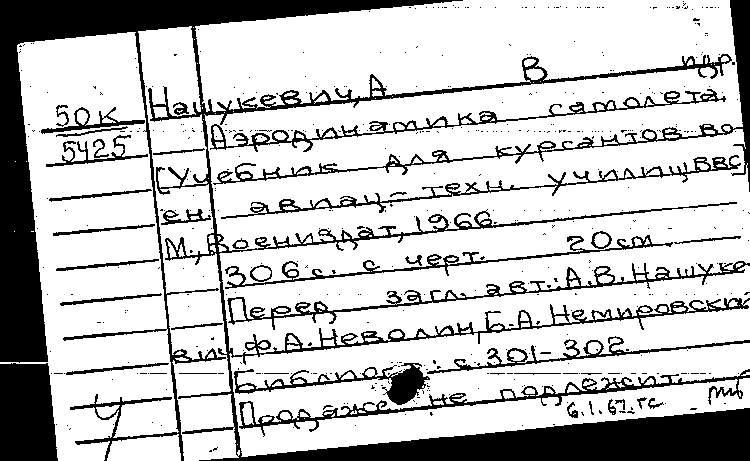 50К
5425
Нашукевич, А В и др.
Аэродинамика самолета.
[Учебник для курсантов во-
ен. авиац-техн. училищ ВВС]
М., Воениздат, 1966
306 с. с черт. 20 см.
Перед загл. авт.: А.В. Нашуке-
вич, Ф.А. Неволин, Б.А. Немировский
Библиогр: с. 301-302
Продаже не подлежит.
6.1.67. гс